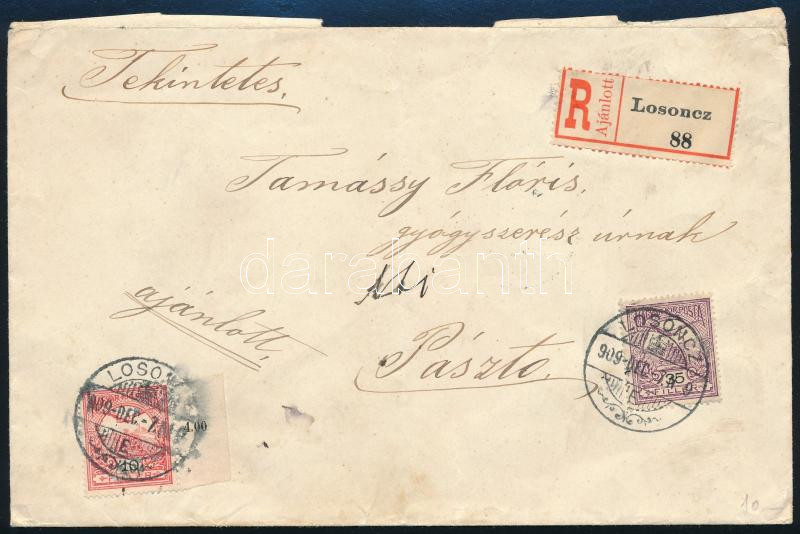 Tekintetes,
R Ajánlott Losoncz
88
Tamássy Flóris,
gyógyszerész úrnak
ajánlott.
Pásztó
LOSONCZ
909-DEC.-7
35
LOSON
909-DEC.-7
4.00
10
darabanth
10-